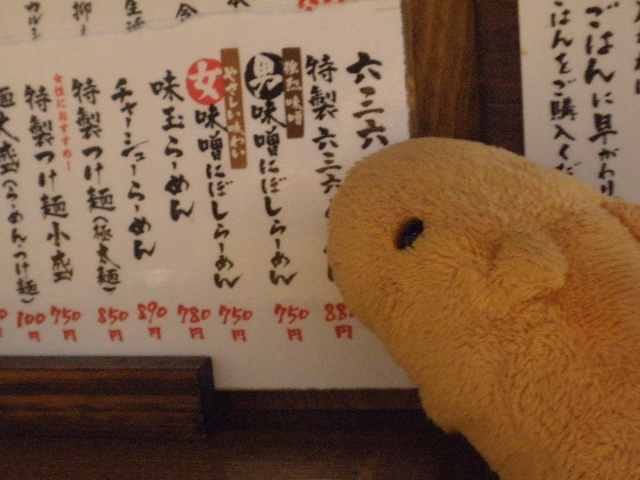 六三六
特製六三六
88
円
濃熟味噌
男味噌にぼしらーめん
750円
やさしい味わい
女味噌にぼしらーめん
750円
味玉らーめん
780円
チャーシューらーめん
890円
特製つけ麺(極太麺)
850円
女性におすすめ!
特製つけ麺小盛
750円
麺大盛(らーめん・つけ麺)
100円
ごはんに早がわり
ごはんをご購入くだ